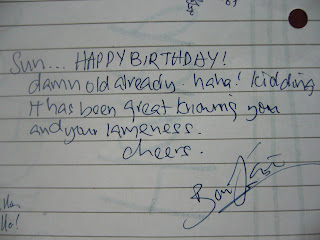 Sun... HAPPY BIRTHDAY!
damn old already. haha! kidding
It has been great knowing you
and your lameness.
cheers.